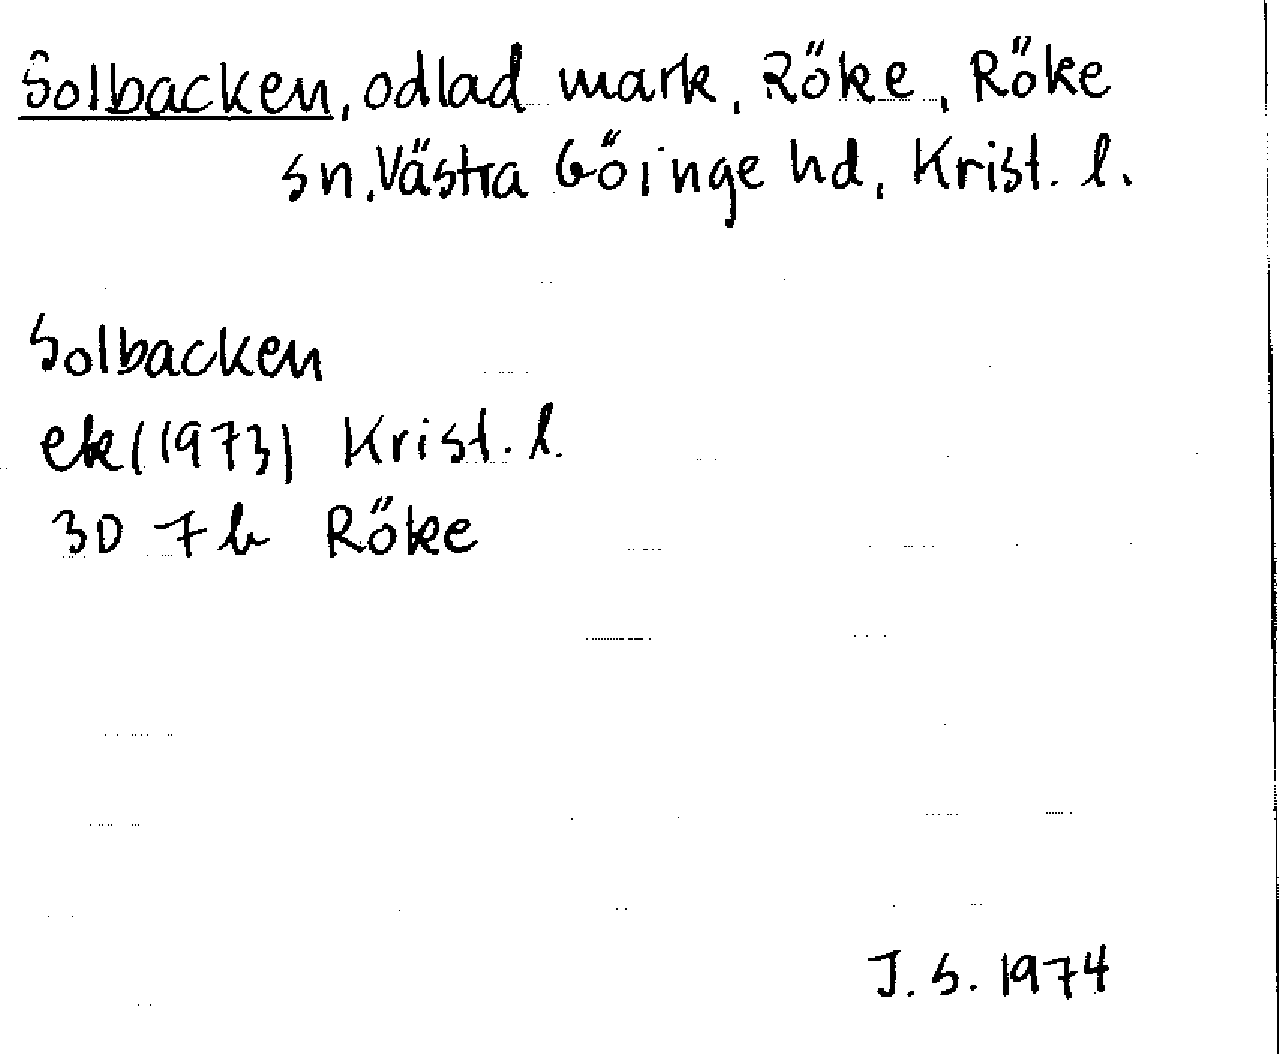 Solbacken, odlad mark, Röke, Röke
sn, Västra Göinge hd, Krist. l.
Solbacken
ek (1973) Krist. l.
3D 7b Röke
J. S. 1974